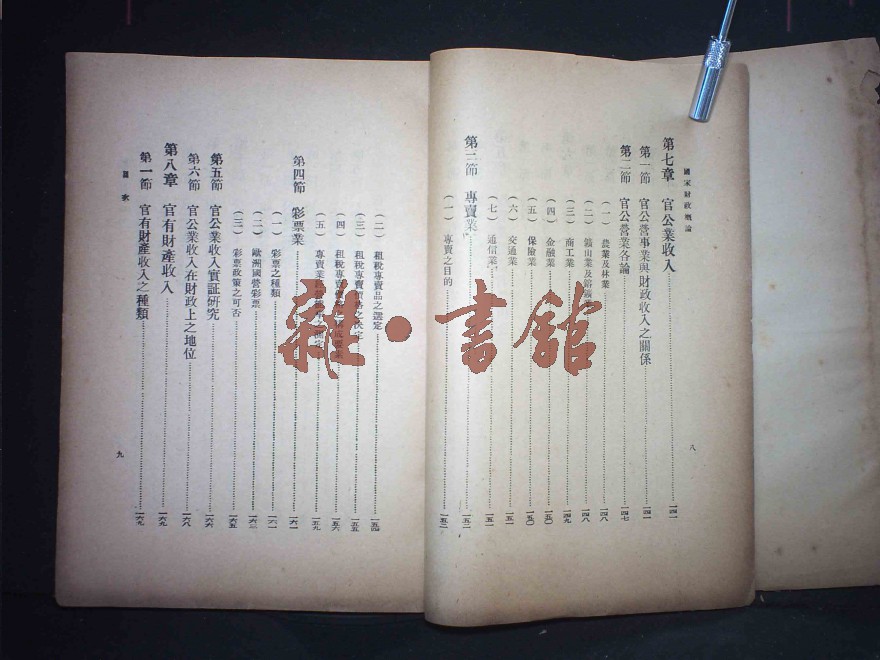 國家財政概論
第七章 官公業收入……一四一
第一節 官公營事業與財政收入之關係……一四一
第二節 官公營業各論……一四七
(一) 農業及林業……一四八
(二) 鑛山業及鎔鑛……一四八
(三) 商工業……一四九
(四) 金融業……一五〇
(五) 保險業……一五〇
(六) 交通業……一五一
(七) 通信業……一五一
第三節 專賣業……一五二
(一) 專賣之目的……一五二
八
(二) 租稅專賣品之選定……一五四
(三) 租稅專賣價格之決定……一五五
(四) 租稅專賣……一五六
(五) 專賣業……一五九
第四節 彩票業……一六一
(一) 彩票之種類……一六一
(二) 歐洲國營彩票……一六三
(三) 彩票政策之可否……一六五
第五節 官公業收入實証研究……一六六
第六節 官公業收入在財政上之地位……一六八
第八章 官有財產收入……一六九
第一節 官有財產收入之種類……一六九
目次
九
雜·書館